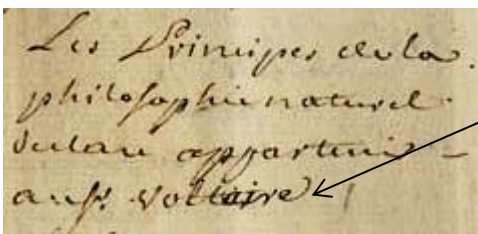 Les Principes de la
philosophie naturel
appartenir
voltaire